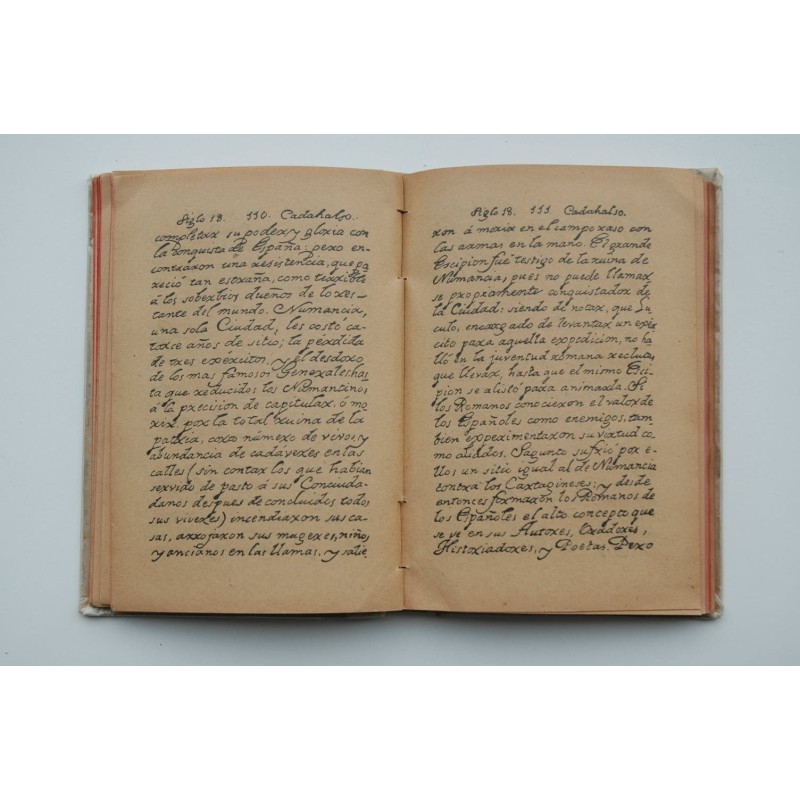 Siglo 18. 110. Cadahalso.
completar su poder y gloria con
la Conquista de España: pero en-
contraron una resistencia, que pa
reció tan estraña, como terrible
á los soberbios dueños de lo res-
tante del mundo. Numancia,
una sola Ciudad, les costó ca-
torse años de sitio; la pérdida
de tres exércitos, y el desdoro
de los mas famosos Generales: has
ta que reducidos los Numantinos
á la precision de capitular, ó mo
rir, por la total ruina de la
patria, corto número de vivos, y
abundancia de cadáveres en las
calles (sin contar los que habian
servido de pasto á sus Conciuda-
danos despues de concluidos todos
sus viveres) incendiaron sus ca-
sas, arrojaron sus mugeres, niños
y ancianos en las llamas, y salie
Siglo 18. 111. Cadahalso.
ron á morir en el campo raso con
las armas en la mano. El grande
Escipion fué testigo de la ruina de
Numancia, pues no puede llamar
se propriamente conquistador de
la Ciudad: siendo de notar, que Lu
culo, encargado de levantar un exer
cito para aquella expedicion, no ha
lló en la juventud romana recluta,
que llevar, hasta que el mismo Esci
pion se alistó para animarla. Si
los Romanos conocieron el valor de
los Españoles como enemigos, tam
bien experimentaron su virtud co
mo aliados. Sagunto sufrió por e-
llos un sitio igual al de Numancia
contra los Cartagineses; y desde
entonces formaron los Romanos de
los Españoles el alto concepto que
se ve en sus Autores, Oradores,
Historiadores, y Poetas. Pero